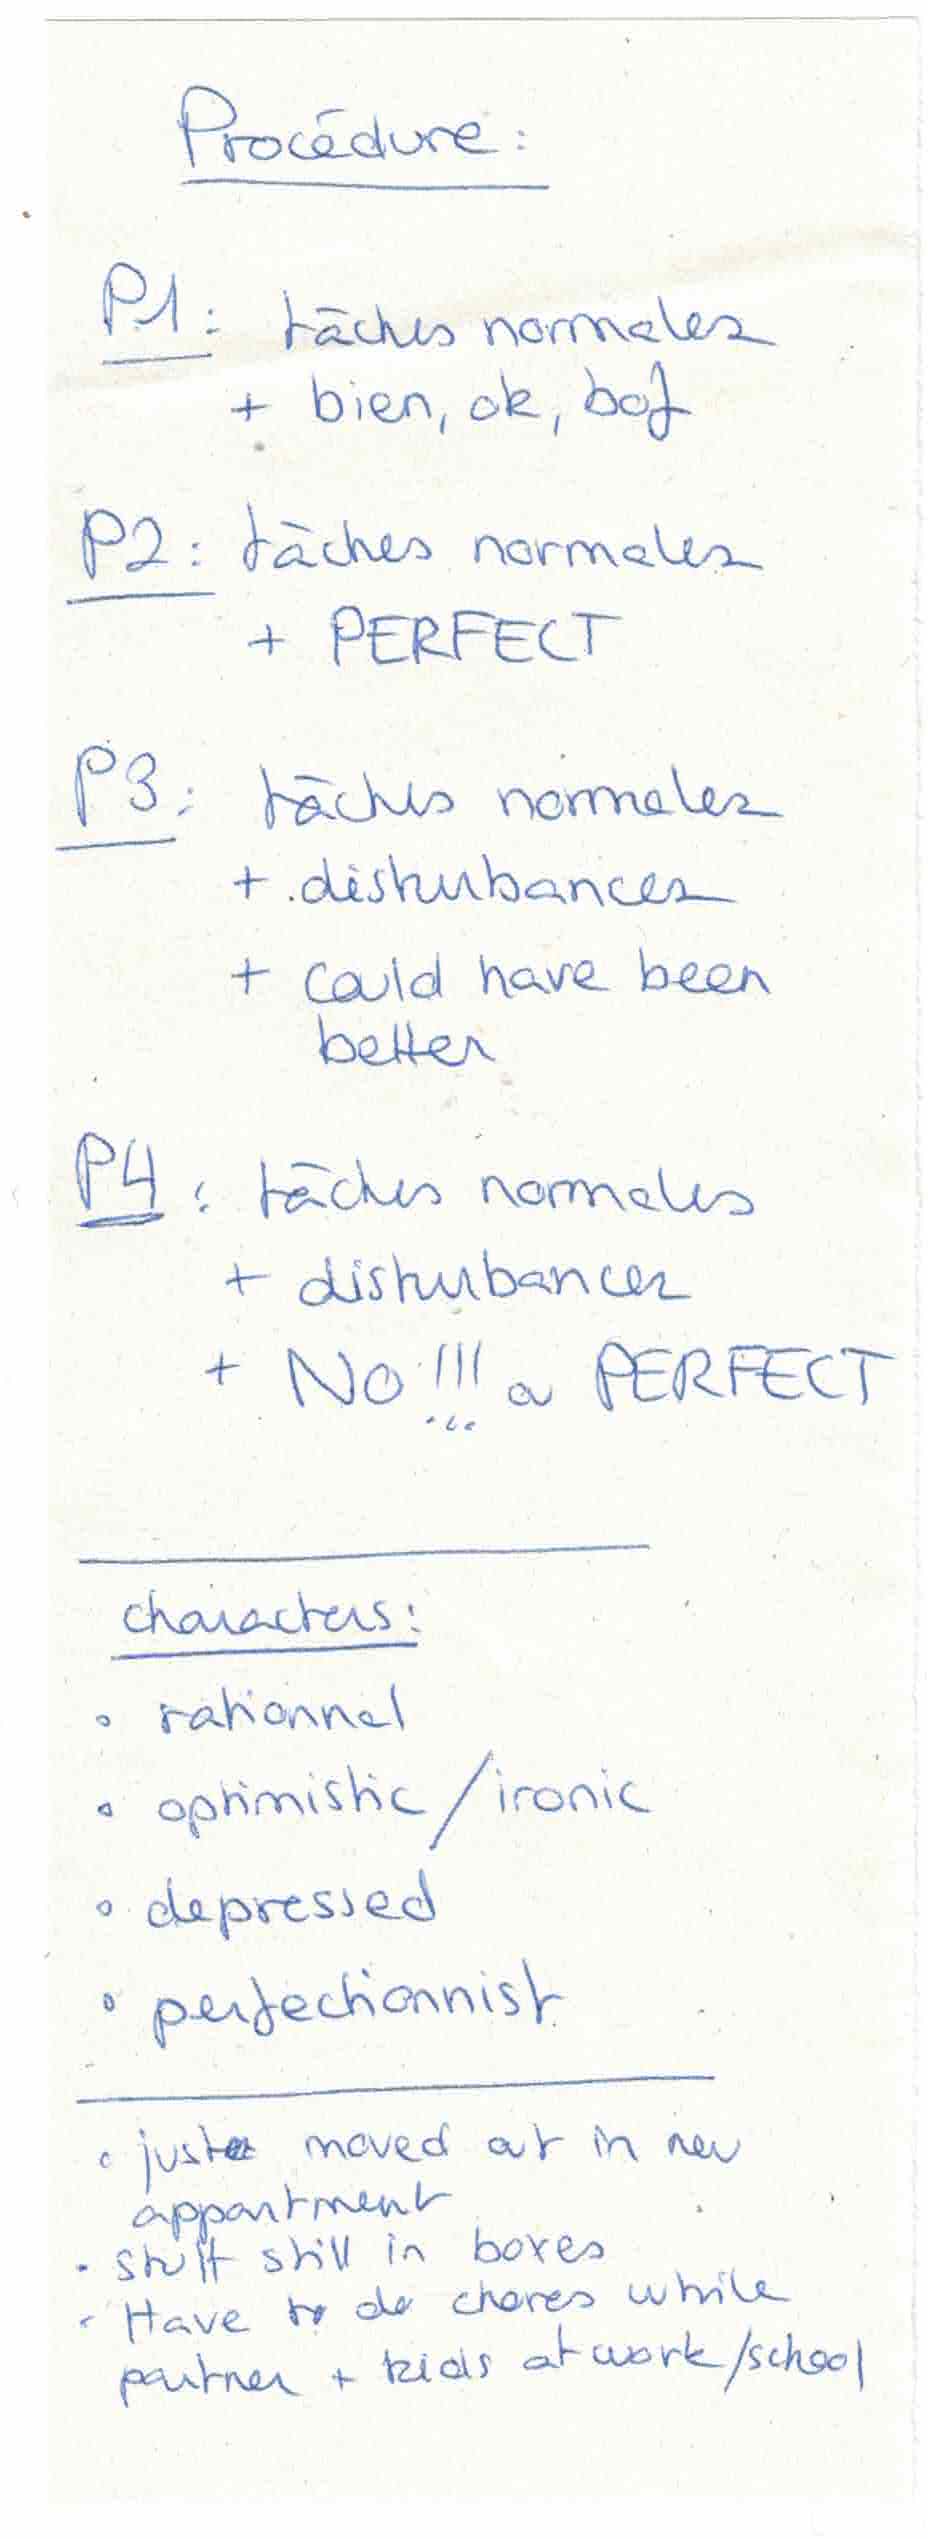 Procédure :
P1 : tâches normales
+ bien, ok, bof
P2 : tâches normales
+ PERFECT
P3 : tâches normales
+ disturbances
+ could have been
better
P4 : tâches normales
+ disturbances
+ NO !!! a PERFECT
characters :
• rationnel
• optimistic / ironic
• depressed
• perfectionnist
• just moved out in new
appartment
• stuff still in boxes
• Have to do chores while
partner + kids at work/school